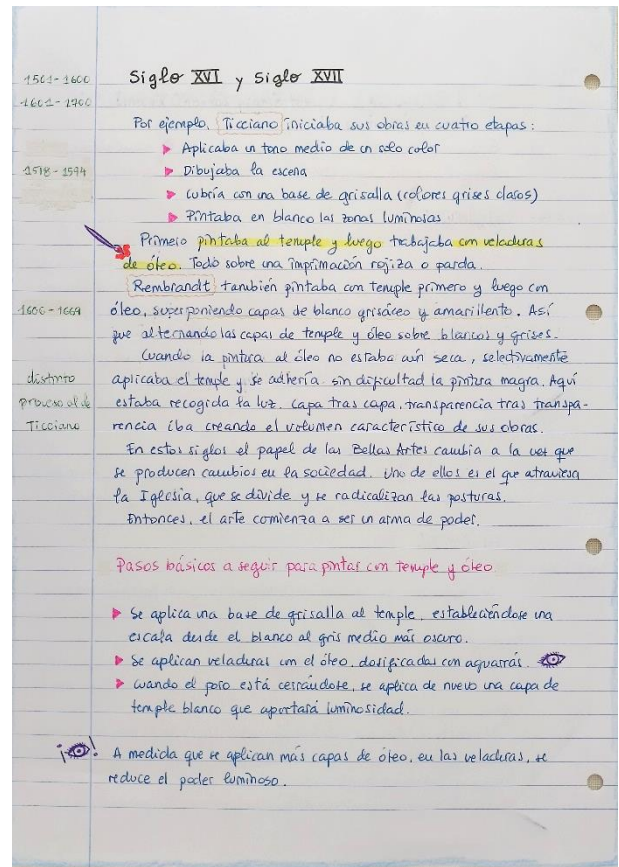 1501-1600
Siglo XVI y Siglo XVII
1601-1700
Por ejemplo, Ticciano iniciaba sus obras en cuatro etapas:
Aplicaba un tono medio de un solo color
1518-1594
Dibujaba la escena
Cubría con una base de grisalla (colores grises claros)
Pintaba en blanco las zonas luminosas
Primero pintaba al temple y luego trabajaba con veladuras
de óleo. Todo sobre una imprimación rojiza o parda.
Rembrandt también pintaba con temple primero y luego con
1606-1669
óleo, superponiendo capas de blanco grisáceo y amarillento. Así
que alternando las capas de temple y óleo sobre blancos y grises.
Cuando la pintura al óleo no estaba aún seca, selectivamente
distinto
aplicaba el temple y se adhería sin dificultad la pintura magra. Aquí
proceso al de
estaba recogida la luz, capa tras capa, transparencia tras transpa-
Ticciano
rencia iba creando el volumen característico de sus obras.
En estos siglos el papel de las Bellas Artes cambia a la vez que
se producen cambios en la sociedad. Uno de ellos es el que atraviesa
la Iglesia, que se divide y se radicalizan las posturas.
Entonces, el arte comienza a ser un arma de poder.
Pasos básicos a seguir para pintar con temple y óleo
Se aplica una base de grisalla al temple, estableciéndose una
escala desde el blanco al gris medio más oscuro.
Se aplican veladuras con el óleo, dosificadas con aguarrás.
Cuando el poro está cerrándose, se aplica de nuevo una capa de
temple blanco que aportará luminosidad.
¡ !
A medida que se aplican más capas de óleo, en las veladuras, se
reduce el poder luminoso.